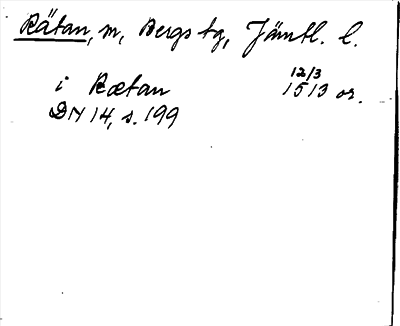 Rätan, m, Bergs tg, Jämtl. l.
i Rætan 12/3 1513 or.
DN 14, s. 199